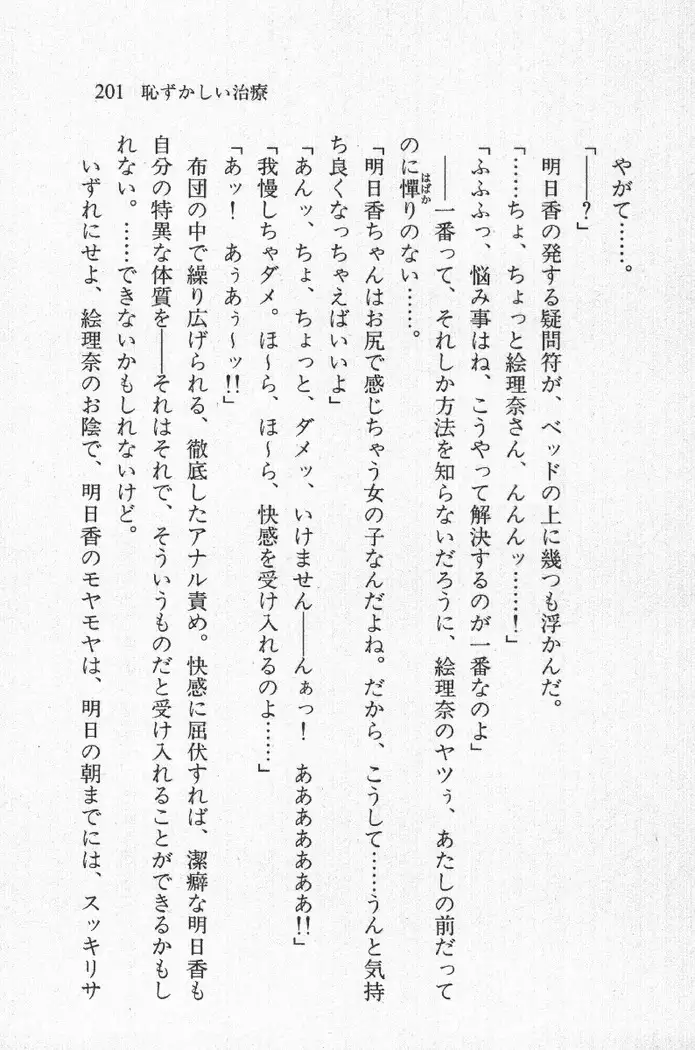 201 恥ずかしい治療
やがて……。
「――？」
明日香の発する疑問符が、ベッドの上に幾つも浮かんだ。
「……ちょ、ちょっと絵理奈さん、んんんッ……！」
「ふふふっ、悩み事はね、こうやって解決するのが一番なのよ」
――一番って、それしか方法を知らないだろうに、絵理奈のヤツぅ、あたしの前だって
のに憚りのない……。
はばか
「明日香ちゃんはお尻で感じちゃう女の子なんだよね。だから、こうして……うんと気持
ち良くなっちゃえばいいよ」
「あんッ、ちょ、ちょっと、ダメッ、いけません――んぁっ！　あああああああ!!」
「我慢しちゃダメ。ほ～ら、ほ～ら、快感を受け入れるのよ……」
「あッ！　あぅあぅ～ッ!!」
布団の中で繰り広げられる、徹底したアナル責め。快感に屈伏すれば、潔癖な明日香も
自分の特異な体質を――それはそれで、そういうものだと受け入れることができるかもし
れない。……できないかもしれないけど。
いずれにせよ、絵理奈のお陰で、明日香のモヤモヤは、明日の朝までには、スッキリサ